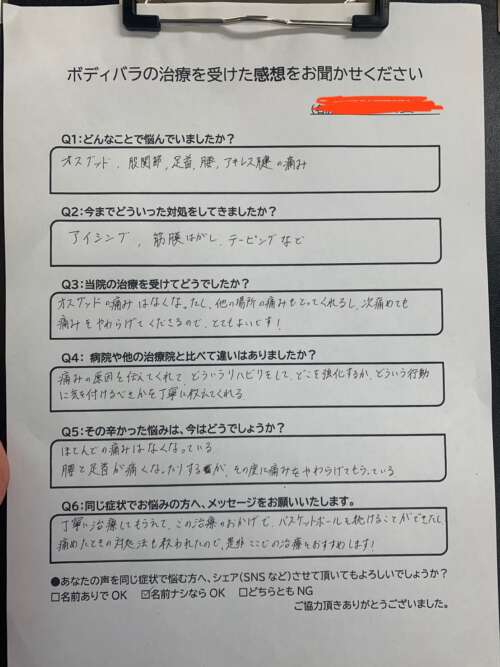 ボディバラの治療を受けた感想をお聞かせください
Q1:どんなことで悩んでいましたか？
オスグッド、股関節、足首、腰、アキレス腱の痛み
Q2:今までどういった対処をしてきましたか？
アイシング、筋膜はがし、テーピングなど
Q3:当院の治療を受けてどうでしたか？
オスグッドの痛みはなくなったし、他の場所の痛みもとってくれるし、次痛めても
痛みをやわらげてくださるので、とてもよいです！
Q4: 病院や他の治療院と比べて違いはありましたか？
痛みの原因を伝えてくれて、どういうリハビリをして、どこを強化するか、どういう行動
に気を付けるべきかを丁寧に教えてくれる
Q5:その辛かった悩みは、今はどうでしょうか？
ほとんどの痛みはなくなっている
腰と足首が痛くなったりするが、その度に痛みをやわらげてもらっている
Q6:同じ症状でお悩みの方へ、メッセージをお願いいたします。
丁寧に治療してもらえて、この治療のおかげで、バスケットボールも続けることができたし、
痛めたときの対処法も教われたので、是非ここでの治療をおすすめします！
●あなたの声を同じ症状で悩む方へ、シェア(SNSなど)させて頂いてもよろしいでしょうか？
☐名前ありでOK ☑名前ナシならOK ☐どちらともNG
ご協力頂きありがとうございました。